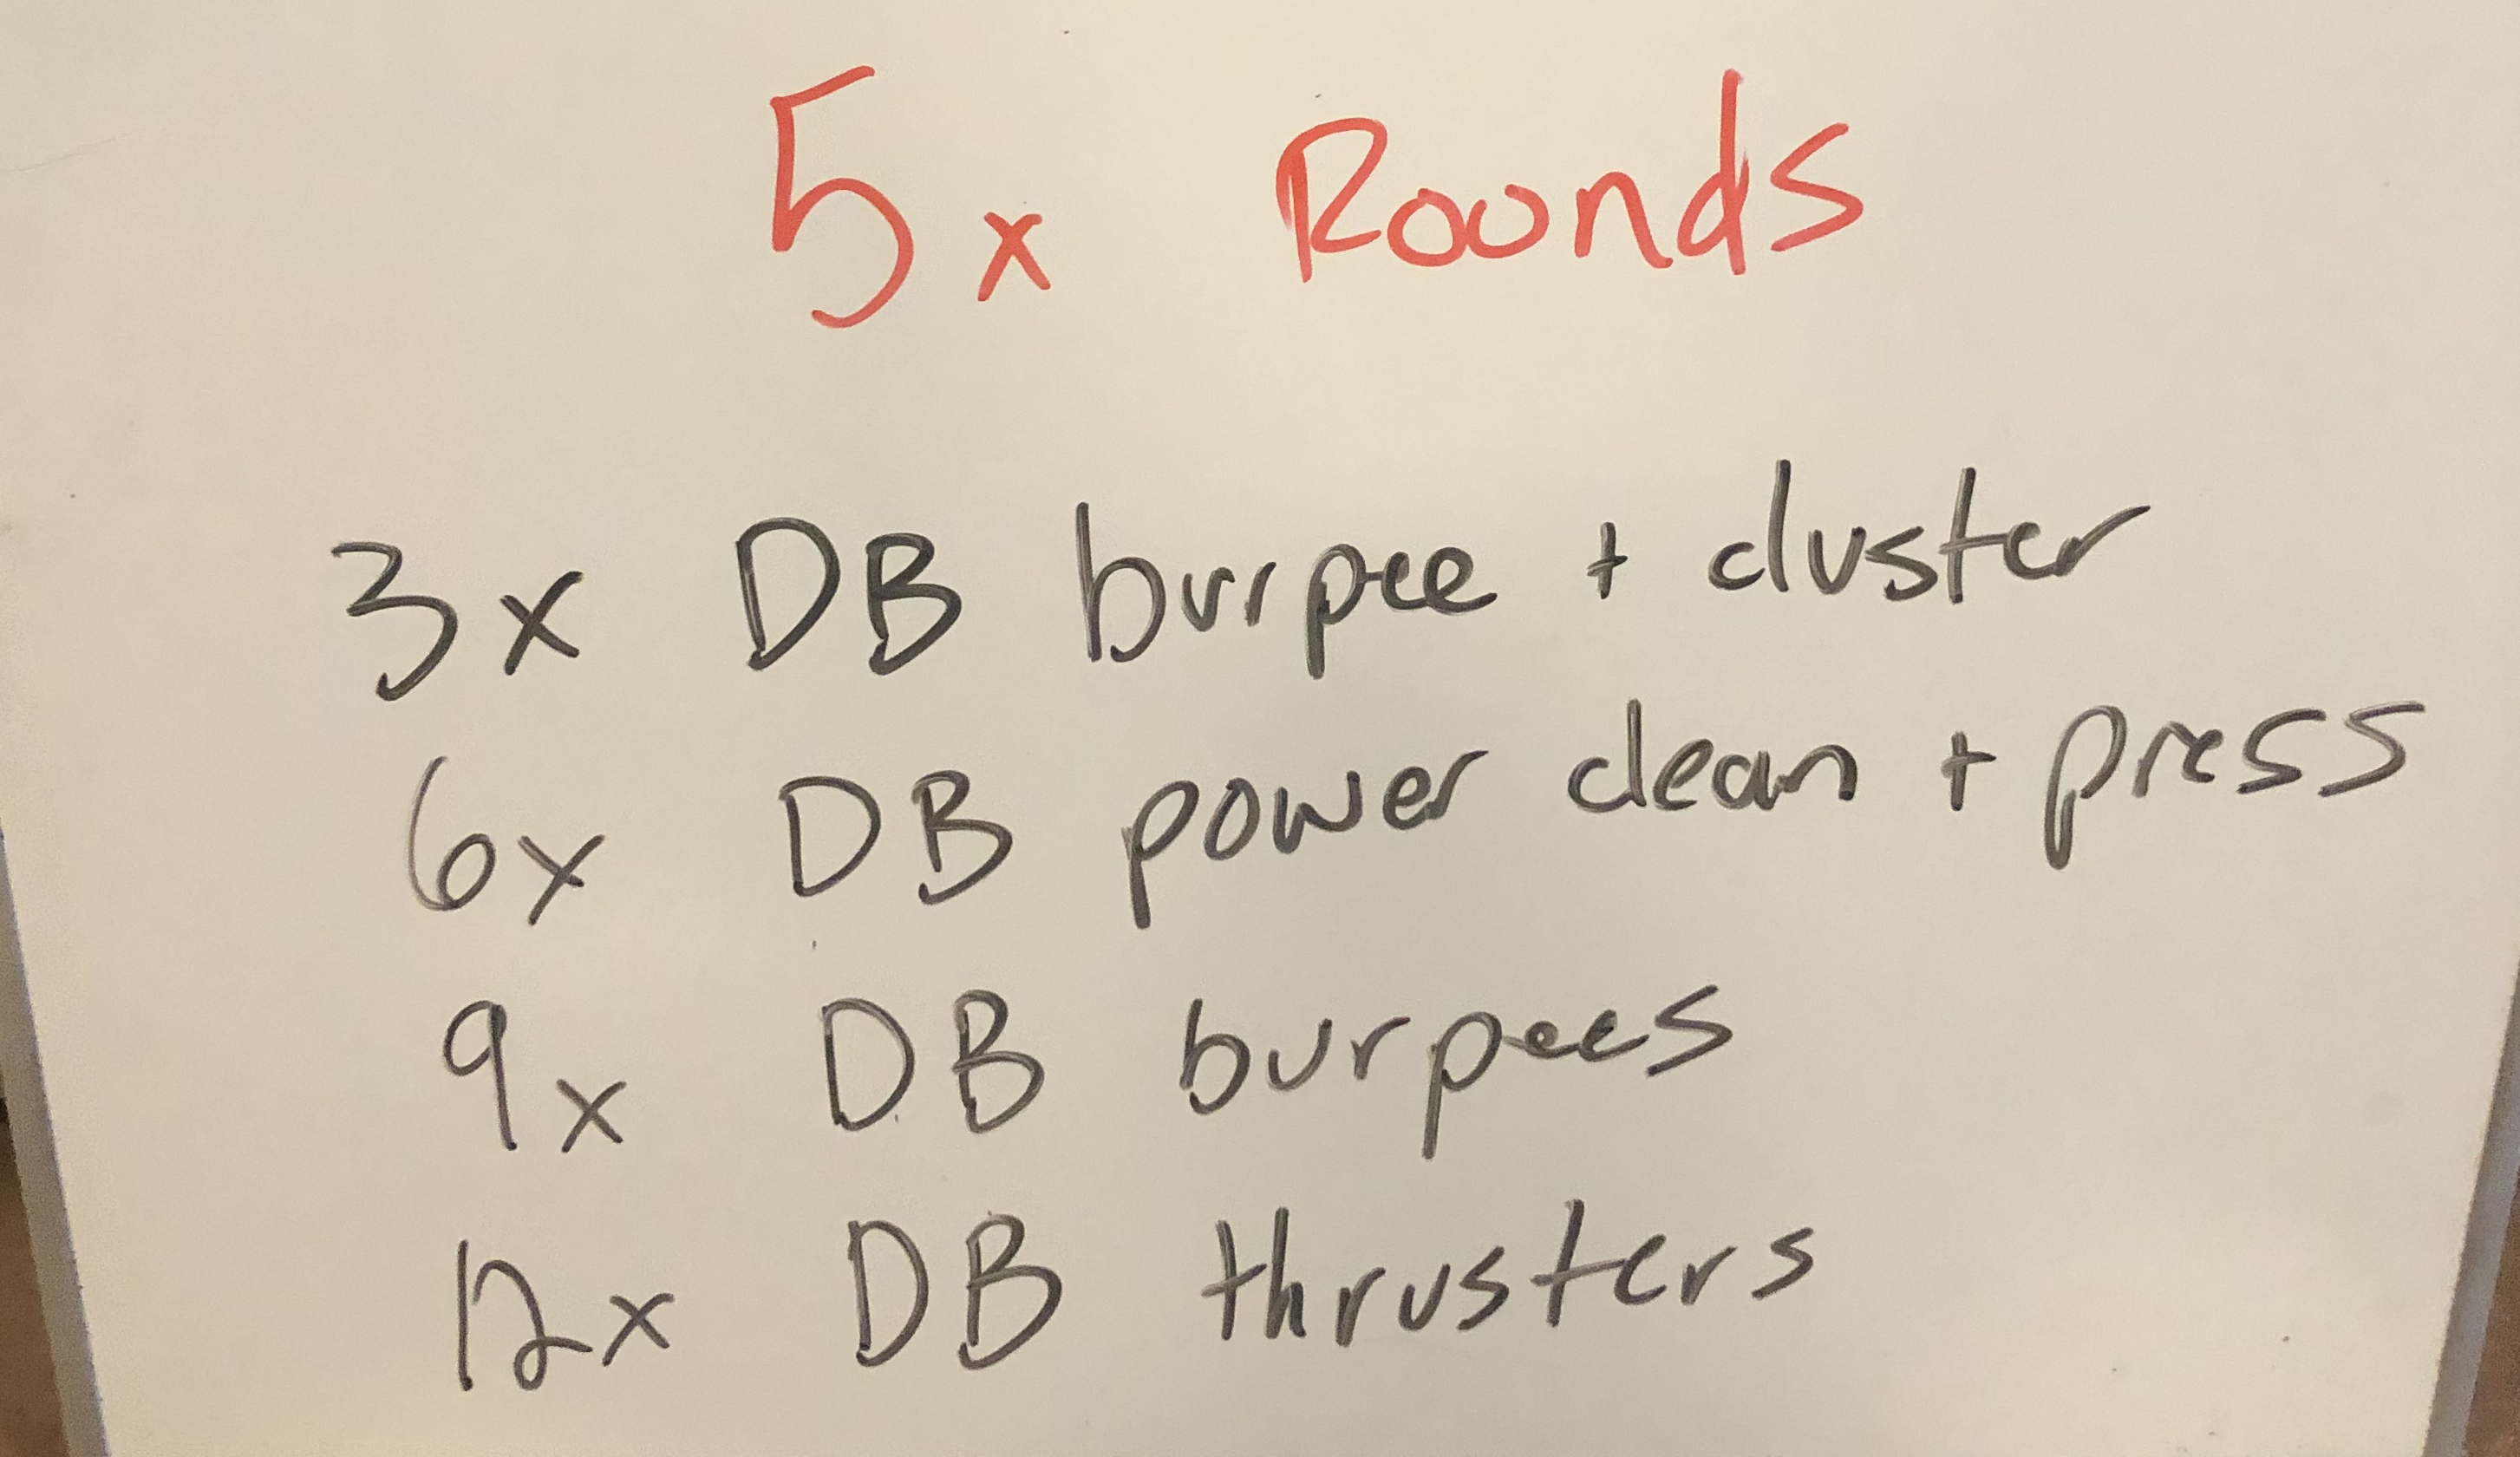 5x Rounds
3x DB burpee + cluster
6x DB power clean + press
9x DB burpees
12x DB thrusters